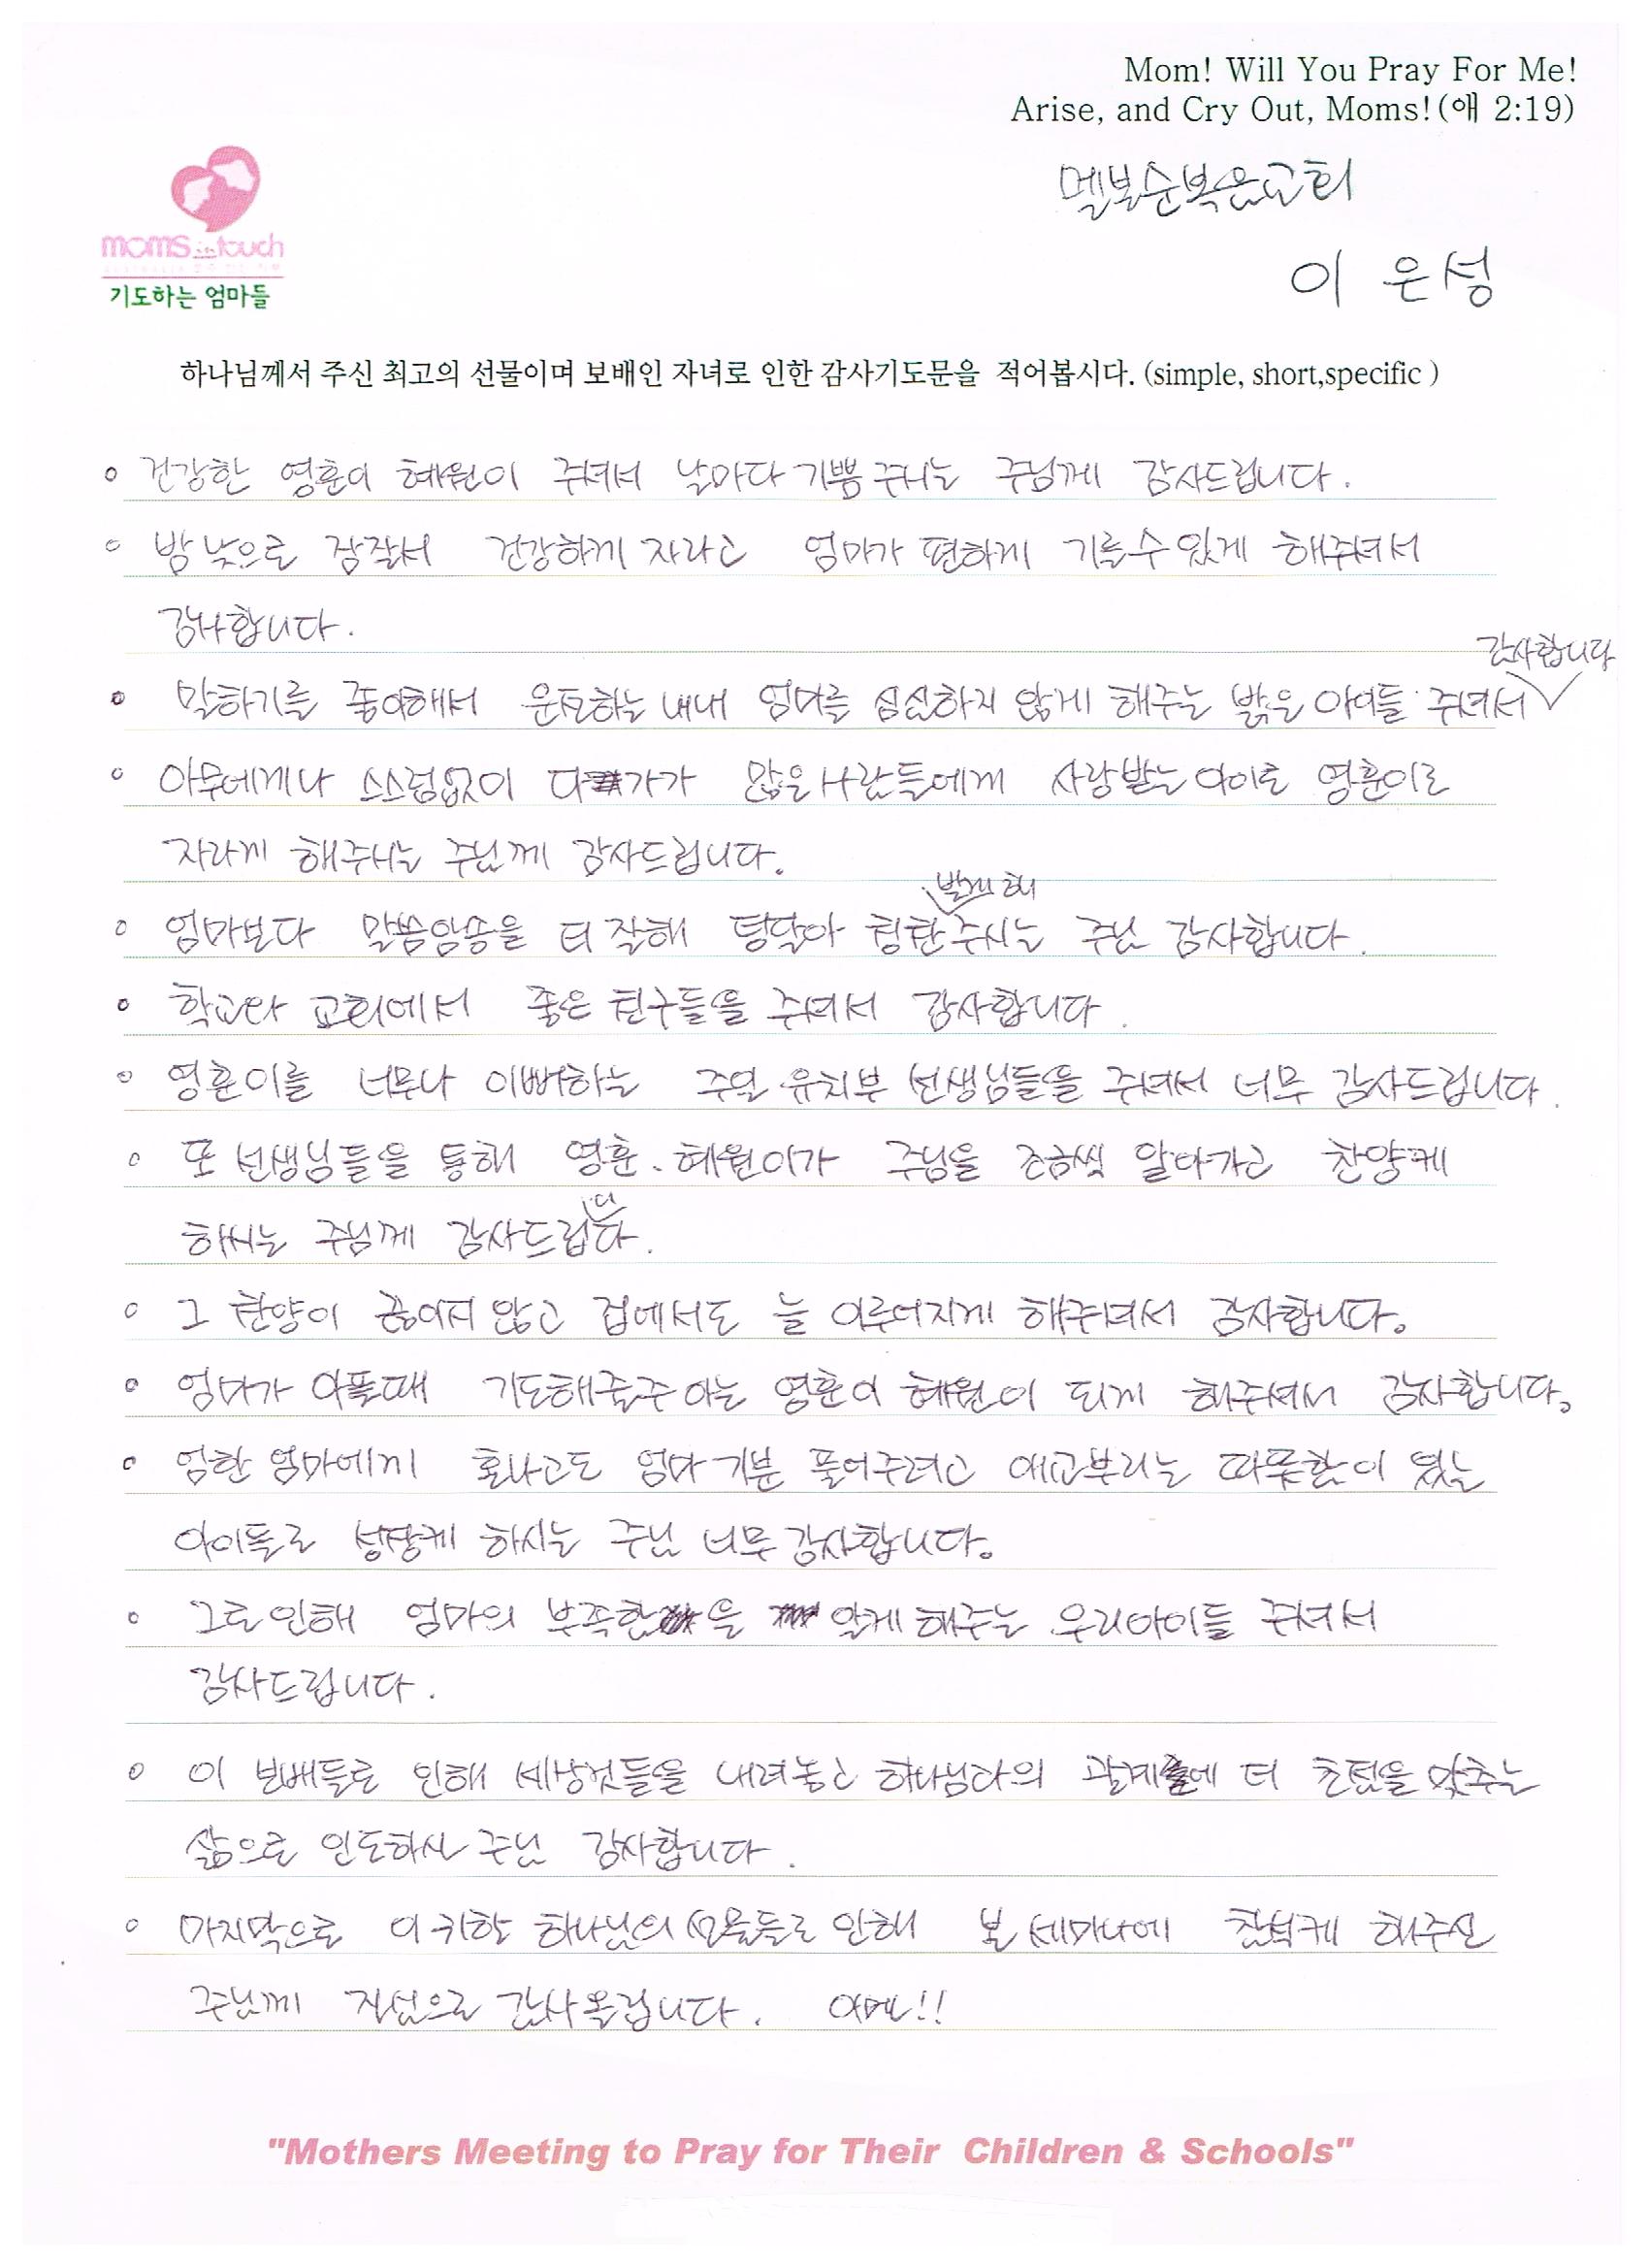 Mom! Will You Pray For Me!
Arise, and Cry Out, Moms!(애 2:19)
멜본순복음교회
이 은성
moms in touch
기도하는 엄마들
하나님께서 주신 최고의 선물이며 보배인 자녀로 인한 감사기도문을 적어봅시다. (simple, short,specific )
건강한 영훈이 혜원이 주셔서 날마다 기쁨 주시는 주님께 감사드립니다.
밤 낮으로 잠잘서 건강하게 자라고 엄마가 편하게 기를수있게 해주셔서
감사합니다.
감사합니다
말하기를 좋아해서 운전하는내내 엄마를 심심하지 않게 해주는 밝은 아이들 주셔서
아무에게나 스스럼없이 다가가 많은사람들에게 사랑받는아이로 영훈이로
자라게 해주시는 주님께 감사드립니다.
받게 해
엄마보다 말씀암송을 더 잘해 덩달아 칭찬 주시는 주님 감사합니다.
학교와 교회에서 좋은 친구들을 주셔서 감사합니다.
영훈이를 너무나 이뻐하는 주일 유치부 선생님들을 주셔서 너무 감사드립니다.
또 선생님들을 통해 영훈. 혜원이가 주님을 조금씩 알아가고 찬양케
니
하시는 주님께 감사드립다.
그 찬양이 끊어지 않고 집에서도 늘 이루어지게 해주셔서 감사합니다.
엄마가 아플때 기도해줄주 아는 영훈이 혜원이 되게 해주셔서 감사합니다.
엄한 엄마에게 혼나고도 엄마 기분 풀어주려고 애교부리는 따뜻함이 있는
아이들로 성장케 하시는 주님 너무 감사합니다.
그로인해 엄마의 부족함을 알게 해주는 우리아이들 주셔서
감사드립니다.
이 보배들로 인해 세상것들을 내려놓고 하나님과의 관계에 더 초점을 맞추는
삶으로 인도하신 주님 감사합니다.
마지막으로 이 귀한 하나님의 선물들로 인해 본 세미나에 참석케 해주신
주님께 진심으로 감사 올립니다. 아멘!!
"Mothers Meeting to Pray for Their Children & Schools"